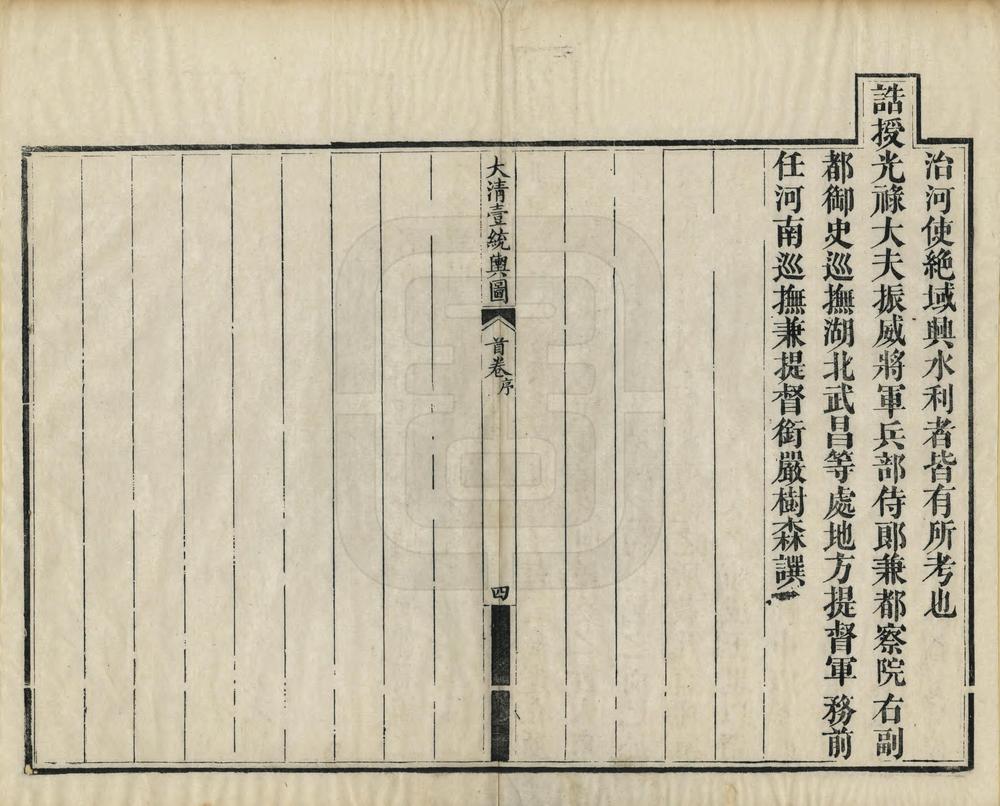 治河使絕域興水利者皆有所考也
誥授光祿大夫振威將軍兵部侍郎兼都察院右副
都御史巡撫湖北武昌等處地方提督軍務前
任河南巡撫兼提督銜嚴樹森譔
大清壹統輿圖 首卷序 四